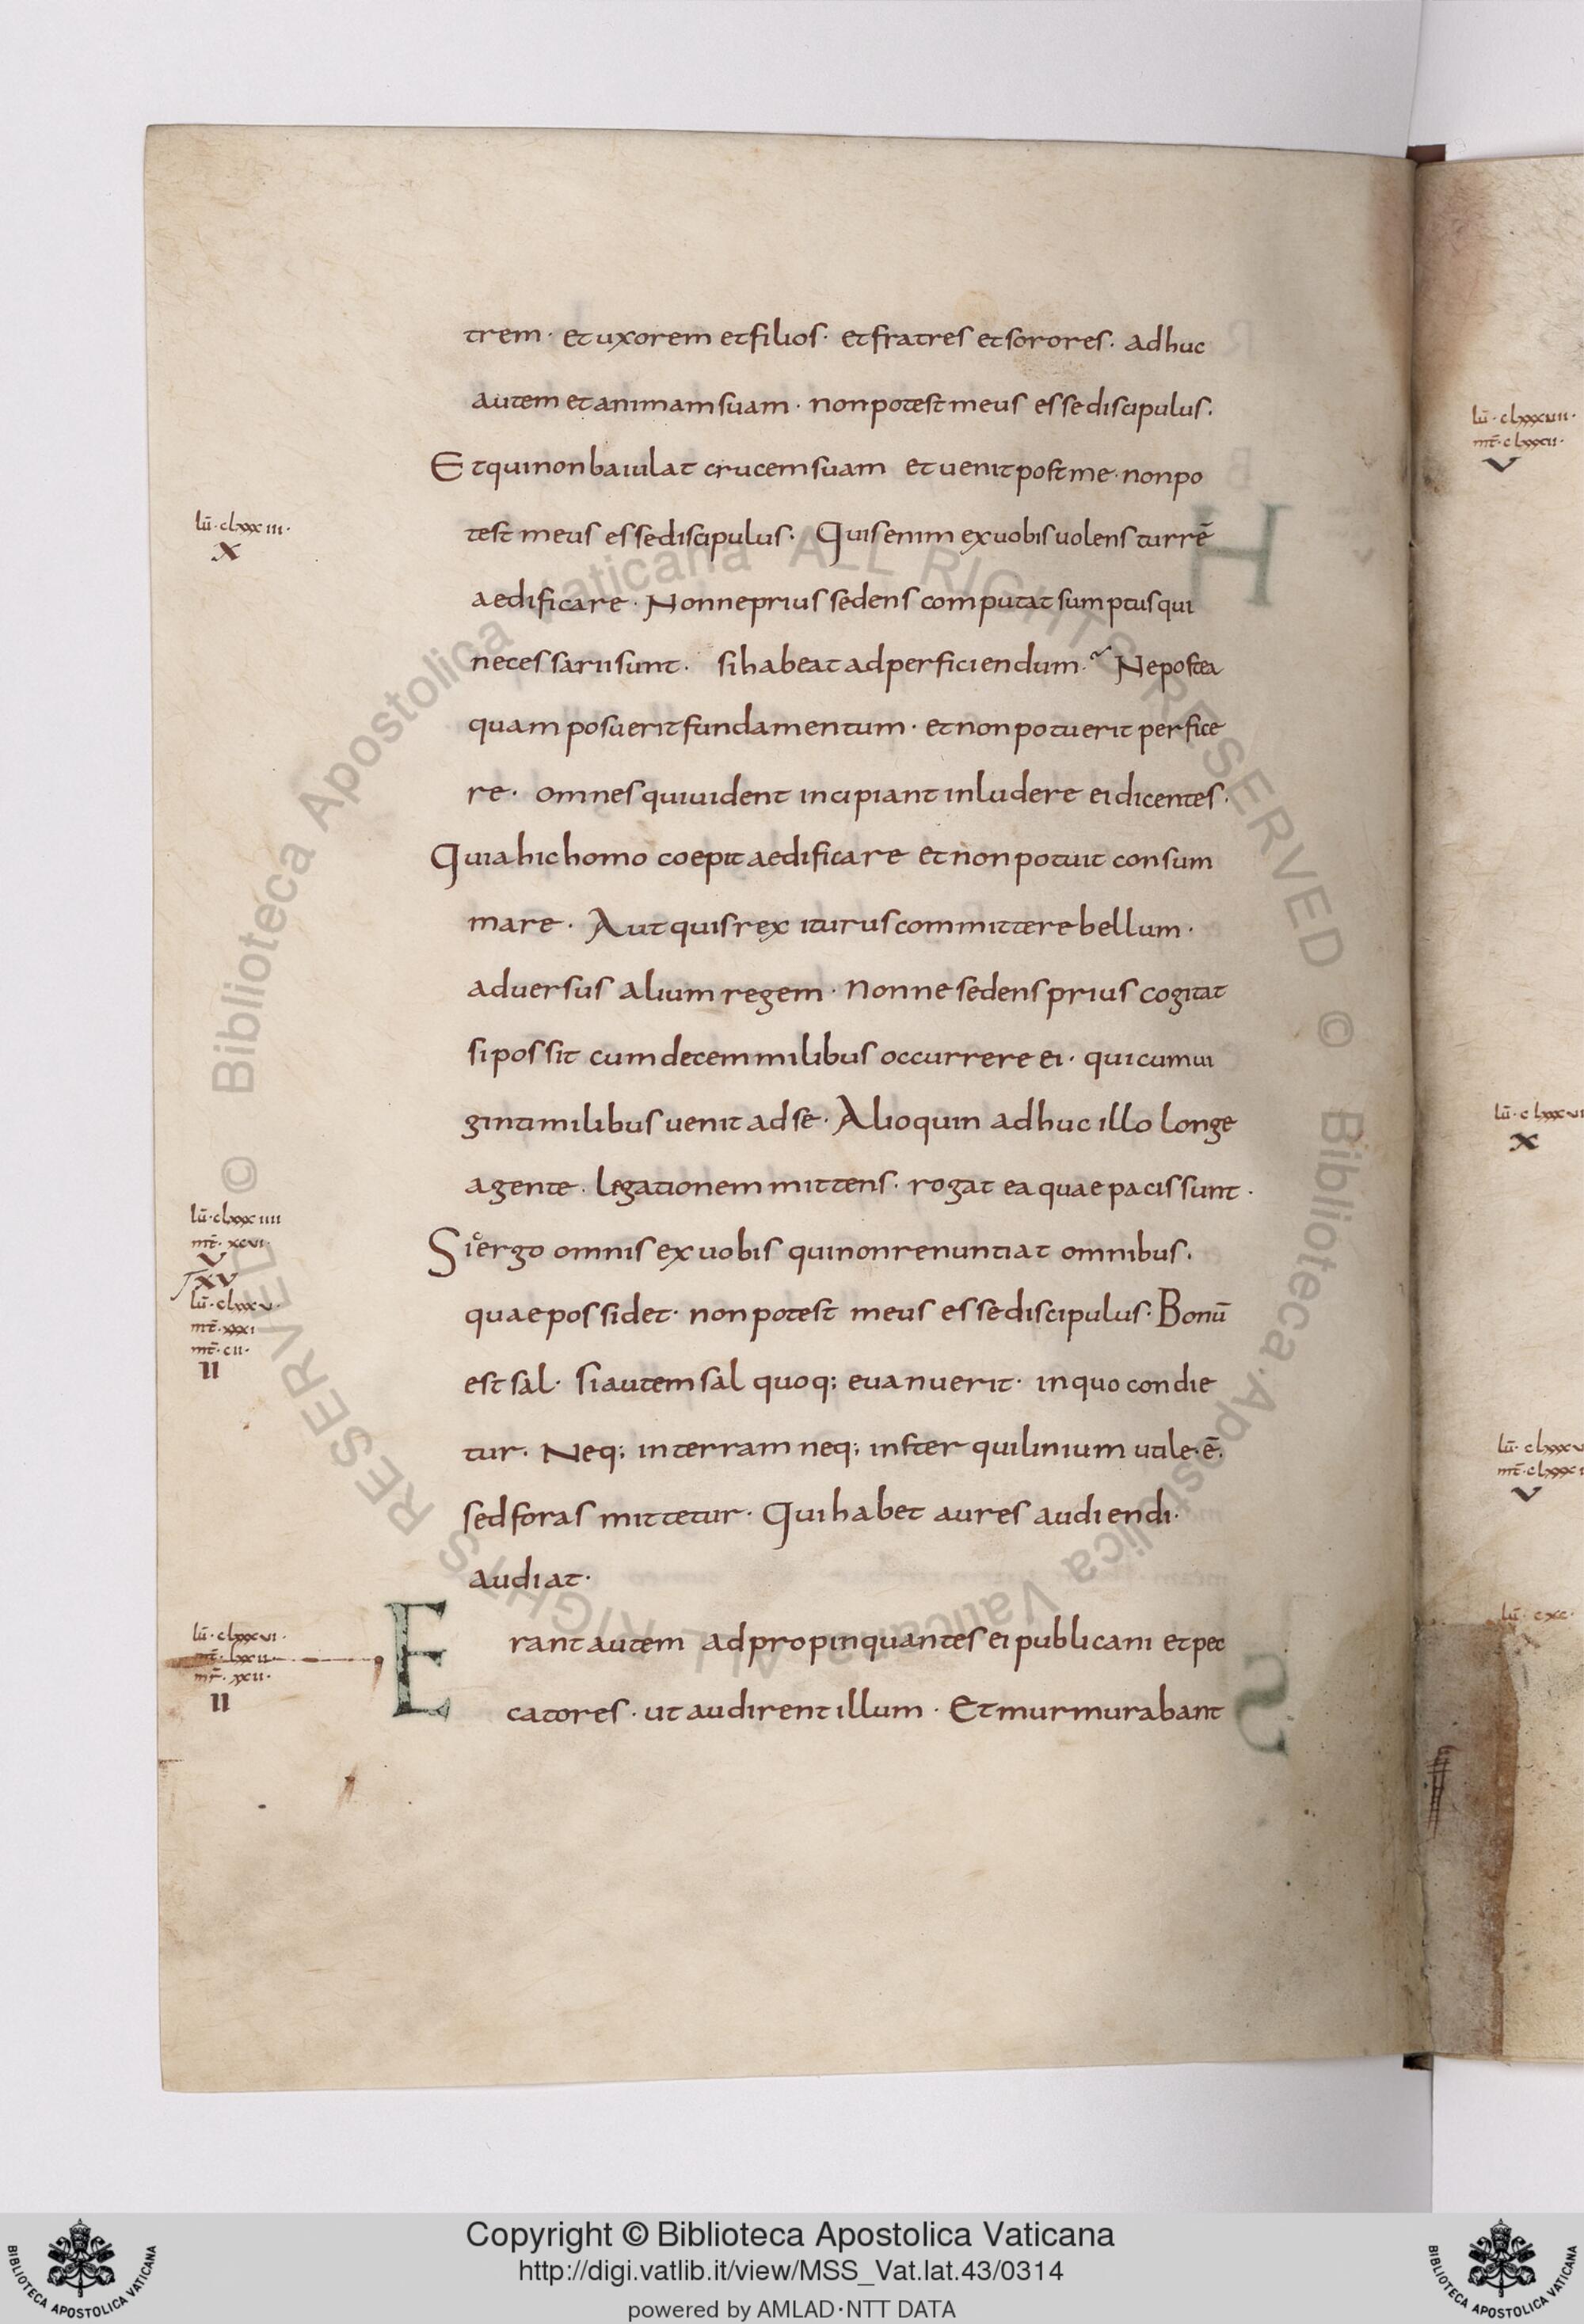 trem · et uxorem et filios · et fratres et sorores · adhuc
autem et animam suam · non potest meus esse discipulus ·
Et qui non baiulat crucem suam et uenit post me · non po
lū · clxxxiii ·
X
test meus esse discipulus · Quis enim ex uobis uolens turrē
aedificare · Nonne prius sedens computat sumptus qui
necessarii sunt · si habeat ad perficiendum · Ne postea
quam posuerit fundamentum · et non potuerit perfice
re · omnes qui uident incipiant inludere ei dicentes ·
Quia hic homo coepit aedificare et non potuit consum
mare · Aut quis rex iturus committere bellum ·
aduersus alium regem · Nonne sedens prius cogitat
si possit cum decem milibus occurrere ei · qui cum ui
ginti milibus uenit ad se · Alioquin adhuc illo longe
agente · legationem mittens · rogat ea quae pacis sunt ·
lū · clxxxiiii
mt̄ · xcvi ·
V
XV
Si ergo omnis ex uobis qui non renuntiat omnibus ·
quae possidet · non potest meus esse discipulus · Bonū
lū · clxxxv ·
mt̄ · xxxi
mr̄ · cii ·
II
est sal · si autem sal quoq; euanuerit · in quo condie
tur · Neq; in terram neq; in sterquilinium utile · ē ·
sed foras mittetur · Qui habet aures audiendi ·
audiat ·
lū · clxxxvi ·
mt̄ · lxxii ·
mr̄ · xxii ·
II
Erant autem adpropinquantes ei publicani et pec
catores · ut audirent illum · Et murmurabant
lū · clxxxviii ·
mt̄ · clxxxii ·
V
X
V
lū · cxc ·
© Biblioteca Apostolica Vaticana ALL RIGHTS RESERVED © Biblioteca Apostolica Vaticana ALL RIGHTS RESERVED
Copyright © Biblioteca Apostolica Vaticana
http://digi.vatlib.it/view/MSS_Vat.lat.43/0314
powered by AMLAD·NTT DATA
BIBLIOTECA APOSTOLICA VATICANA
BIBLIOTECA APOSTOLICA VATICANA